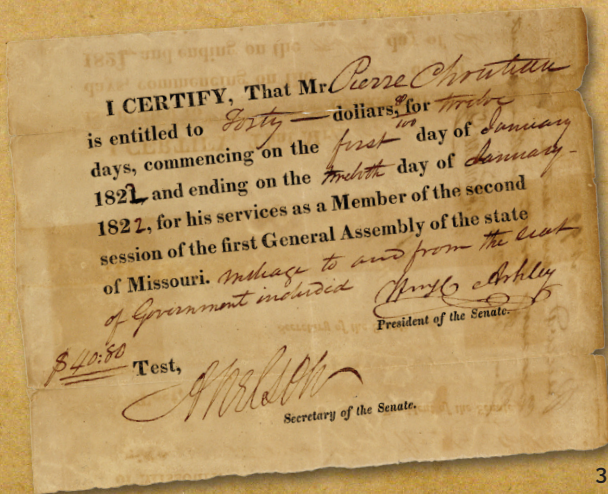 I CERTIFY, That Mr Pierre Chouteau
is entitled to Forty — dollars, 80/100 for twelve
days, commencing on the first day of January
1822, and ending on the twelfth day of January -
1822, for his services as a Member of the second
session of the first General Assembly of the state
of Missouri. mileage to and from the seat
of Government included
Ashley
President of the Senate.
$40:80 Test,
Secretary of the Senate.
3